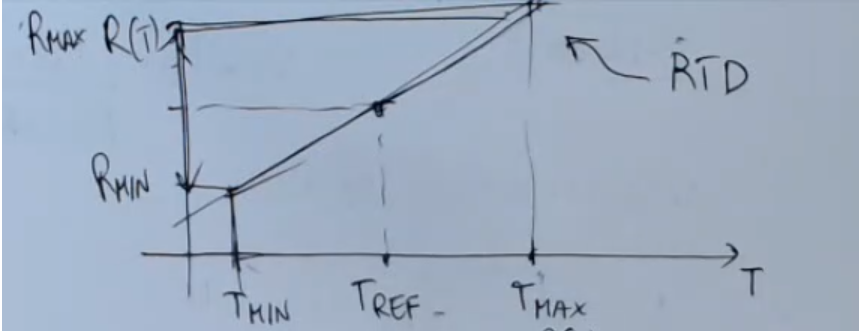 RMAX R(T)
RTD
RMIN
T
TMIN TREF TMAX